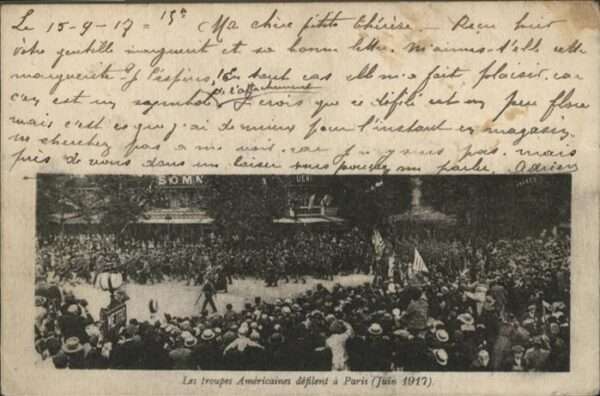 Le 15-9-17 = 19h (Ma chère petite Thérèse - Reçu hier
votre gentille marguerite et sa bonne lettre. M'aimes-t'elle cette
marguerite? J l'éspère, En tout cas elle m'a fait plaisir, car
c'en est un symbole de l'attachement Je crois que ce défilé est un peu flou
mais c'est ce que j'ai de mieux pour l'instant en magasin.
ne cherchez pas a me voir, car j'y suis pas. mais
près de vous dans un baiser vous pouvez me parler. Adrien
SOMM
Les troupes Américaines défilent à Paris (Juin 1917)